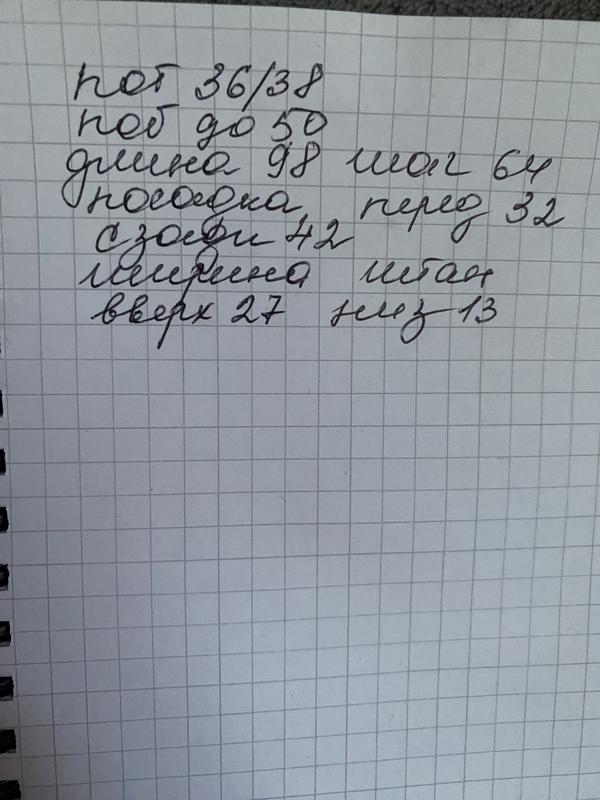 пот 36/38
поб до 50
длина 98 шаг 64
посадка перед 32
сзади 42
ширина штан
вверх 27 низ 13